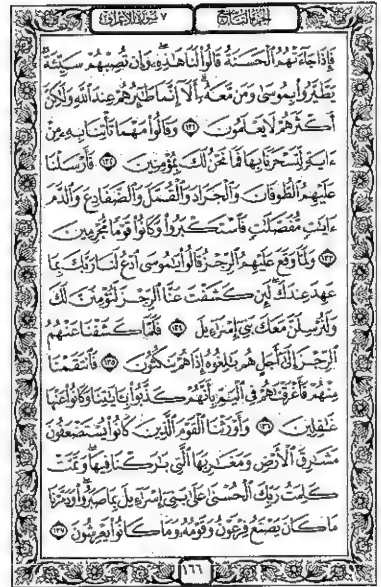 الجزء التاسع ٧ سورة الأعراف
فَإِذَا جَآءَتْهُمُ ٱلْحَسَنَةُ قَالُوا۟ لَنَا هَٰذِهِۦ ۖ وَإِن تُصِبْهُمْ سَيِّئَةٌ
يَطَّيَّرُوا۟ بِمُوسَىٰ وَمَن مَّعَهُۥٓ ۗ أَلَآ إِنَّمَا طَٰٓئِرُهُمْ عِندَ ٱللَّهِ وَلَٰكِنَّ
أَكْثَرَهُمْ لَا يَعْلَمُونَ ﴿١٣١﴾ وَقَالُوا۟ مَهْمَا تَأْتِنَا بِهِۦ مِنْ
ءَايَةٍ لِّتَسْحَرَنَا بِهَا فَمَا نَحْنُ لَكَ بِمُؤْمِنِينَ ﴿١٣٢﴾ فَأَرْسَلْنَا
عَلَيْهِمُ ٱلطُّوفَانَ وَٱلْجَرَادَ وَٱلْقُمَّلَ وَٱلضَّفَادِعَ وَٱلدَّمَ
ءَايَٰتٍ مُّفَصَّلَٰتٍ فَٱسْتَكْبَرُوا۟ وَكَانُوا۟ قَوْمًا مُّجْرِمِينَ
﴿١٣٣﴾ وَلَمَّا وَقَعَ عَلَيْهِمُ ٱلرِّجْزُ قَالُوا۟ يَٰمُوسَى ٱدْعُ لَنَا رَبَّكَ بِمَا
عَهِدَ عِندَكَ ۖ لَئِن كَشَفْتَ عَنَّا ٱلرِّجْزَ لَنُؤْمِنَنَّ لَكَ
وَلَنُرْسِلَنَّ مَعَكَ بَنِىٓ إِسْرَٰٓءِيلَ ﴿١٣٤﴾ فَلَمَّا كَشَفْنَا عَنْهُمُ
ٱلرِّجْزَ إِلَىٰٓ أَجَلٍ هُم بَٰلِغُوهُ إِذَا هُمْ يَنكُثُونَ ﴿١٣٥﴾ فَٱنتَقَمْنَا
مِنْهُمْ فَأَغْرَقْنَٰهُمْ فِى ٱلْيَمِّ بِأَنَّهُمْ كَذَّبُوا۟ بِـَٔايَٰتِنَا وَكَانُوا۟ عَنْهَا
غَٰفِلِينَ ﴿١٣٦﴾ وَأَوْرَثْنَا ٱلْقَوْمَ ٱلَّذِينَ كَانُوا۟ يُسْتَضْعَفُونَ
مَشَٰرِقَ ٱلْأَرْضِ وَمَغَٰرِبَهَا ٱلَّتِى بَٰرَكْنَا فِيهَا ۖ وَتَمَّتْ
كَلِمَتُ رَبِّكَ ٱلْحُسْنَىٰ عَلَىٰ بَنِىٓ إِسْرَٰٓءِيلَ بِمَا صَبَرُوا۟ ۖ وَدَمَّرْنَا
مَا كَانَ يَصْنَعُ فِرْعَوْنُ وَقَوْمُهُۥ وَمَا كَانُوا۟ يَعْرِشُونَ ﴿١٣٧﴾
١٦٦